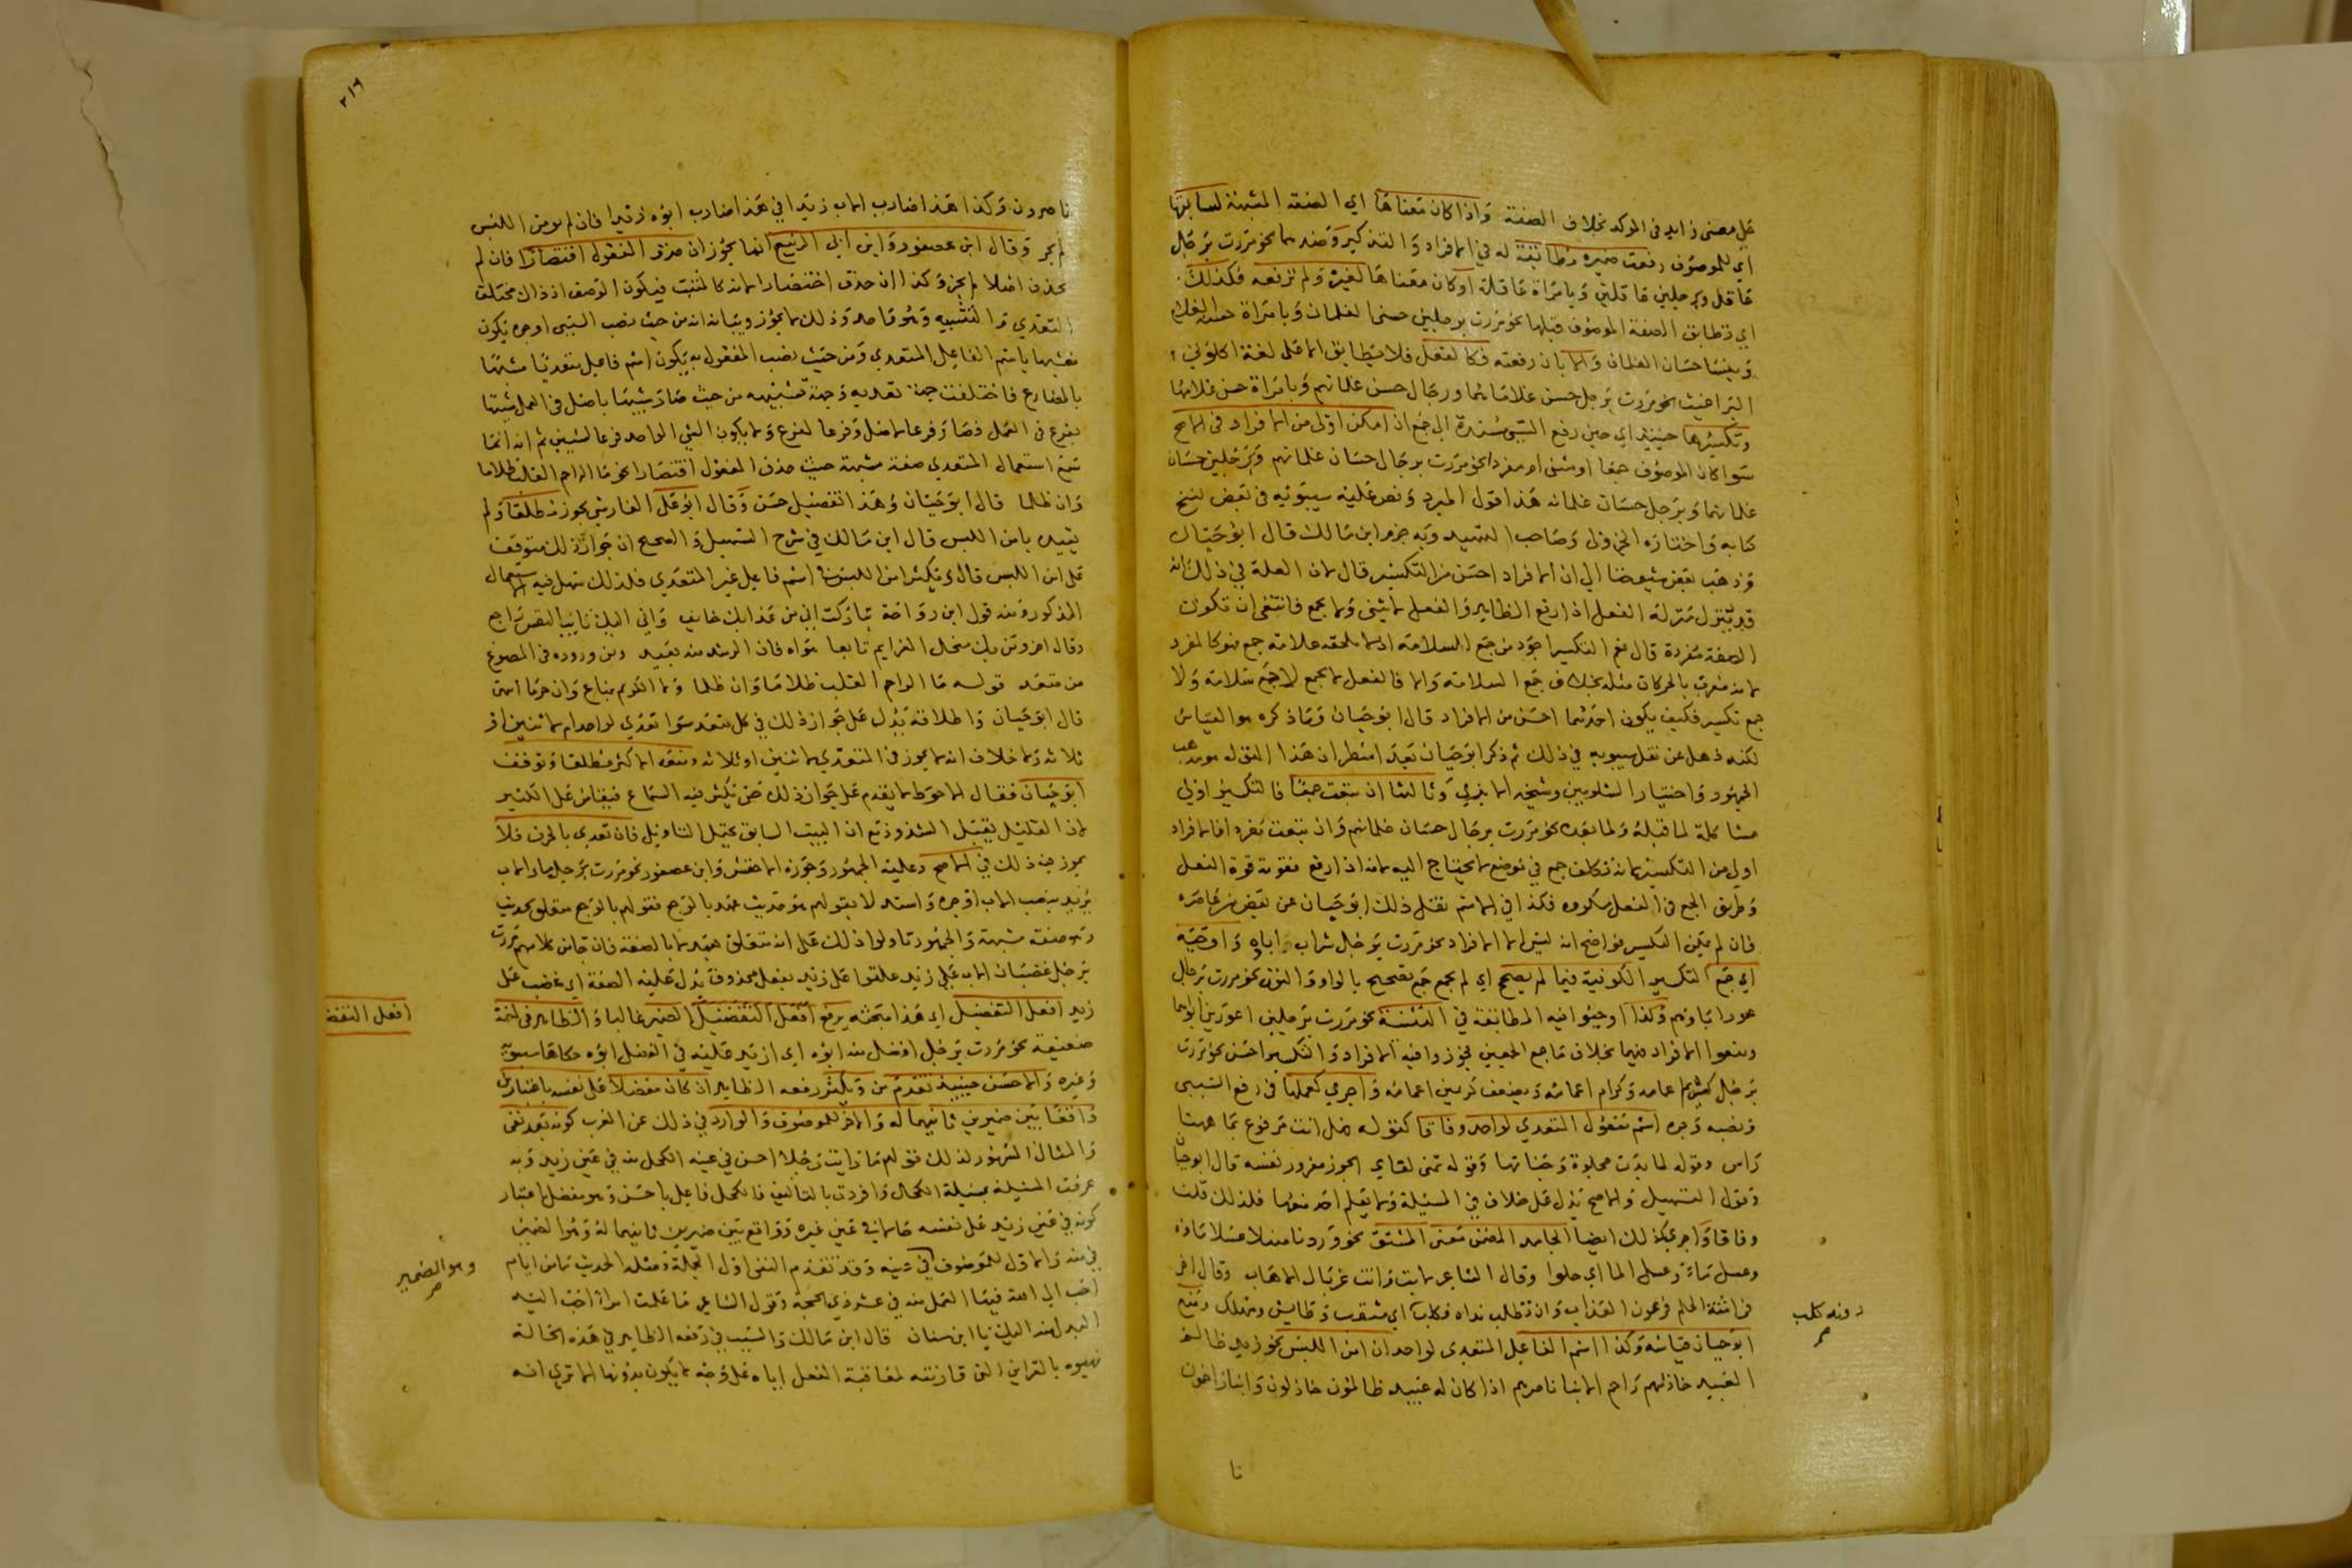 على معنى زايد في الموكد بخلاف الصفة واذا كان معناها اي الصفة المشبهة لسابقها
اي للموصوف رفعت ضميره وطابقته له في الافراد والتذكير وضدهما نحو مررت برجل
عاقل وبرجلين عاقلين وبامراة عاقلة او كان معناها لغيره ولم ترفعه فكذلك
اي تطابق الصفة الموصوف قبلها نحو مررت برجلين حسني الغلمان وبامراة حسنة الغلام
وبنسا حسان الغلمان والا بان رفعته فكالفعل فلا يتطابق الا على لغة اكلوني
البراغيث نحو مررت برجل حسن غلاماهما ورجال حسن غلمانهم وبامراة حسن غلامها
وتكسيرها حينئذ اي حين رفع السببي مسندة الى جمع ان امكن اولى من الافراد في الاصح
سوا كان الموصوف جمعا او مثنى او مفردا نحو مررت برجال حسان غلمانهم وبرجلين حسان
غلمانهما وبرجل حسان غلمانه هذا قول المبرد ونص عليه سيبويه في بعض نسخ
كتابه واختاره الجزولي وصاحب التمهيد وبه جزم ابن مالك قال ابو حيان
وذهب بعض شيوخنا الى ان الافراد احسن من التكسير قال لان العلة في ذلك انه
قد يتنزل منزلة الفعل اذا رفع الظاهر والفعل لا يثنى ولا يجمع فانتفى ان تكون
الصفة مفردة قال نعم التكسير اجود من جمع السلامة اذ لا تلحقه علامة جمع فهو كالمفرد
لانه معرب بالحركات مثله بخلاف جمع السلامة والا فالفعل لا يجمع لا جمع سلامة ولا
جمع تكسير فكيف يكون احدهما احسن من الافراد قال ابو حيان وما ذكره هو القياس
لكنه ذهل عن نقل سيبويه في ذلك ثم ذكر ابو حيان بعد اسطر ان هذا القول هو مذهب
الجمهور واختيار الشلوبين وشيخه الابذي وثالثها ان تبعت جمعا فالتكسير اولى
مشاكلة لما قبله ولما بعده نحو مررت برجال حسان غلمانهم وان تبعت مفردا فالافراد
اولى من التكسير لانه تكلف جمع في موضع لا يحتاج اليه لانه اذا رفع فقوته قوة الفعل
وطريق الجمع في الفعل مكروه فكذا في الاسم نقل ذلك ابو حيان عن بعض من عاصره
فان لم يمكن التكسير فواضح انه ليس الا الافراد نحو مررت برجل شراب اباوه واوجبه
اي جمع التكسير الكوفية فيما لم يصحح اي لم يجمع جمع تصحيح بالواو والنون نحو مررت برجال
عور اباوهم وكذا اوجبوا فيه المطابقة في التثنية نحو مررت برجلين اعورين ابواهما
ومنعوا الافراد فيهما بخلاف ما جمع الجمعين فجوزوا فيه الافراد والتكسير احسن نحو مررت
برجل كريم اعمامه وكرام اعمامه ويضعف كريمين اعمامه واجري كعملها في رفع السببي
ونصبه وجره اسم مفعول المتعدي لواحد وفاقا كقوله فهل انت مرفوع بما ههنا
راس وقوله لما بدت مجلوة وجناتها وقوله تمنى لقاي الجون مغرور نفسه قال ابو حيان
وقول التسهيل والاصح يدل على خلاف في المسئلة ولا يعلم احد منعها فلذلك قلت
وفاقا واجري كذلك ايضا الجامد المضمن معنى المشتق نحو وردنا منهلا عسلا ماوه
وعسل ماء وعسل الما اي حلوا وقال الشاعر لابت وانت غربال الاهاب وقال اخر
فراشة الحلم فرعون العذاب وان تطلب نداه فكلب اي مثقب وطايش ومهلك ومنع
دونه كلب صح
ابو حيان قياسه وكذا اسم الفاعل المتعدي لواحد ان امن اللبس نحو زيد ظالم
العبيد خاذلهم راحم الابنا ناصرهم اذا كان له عبيد ظالمون خاذلون وابنا راحمون
نا
٢١٦
ناصرون وكذا هذا ضارب الاب زيدا في هذا ضارب ابوه زيدا فان لم يومن اللبس
لم يجز وقال ابن عصفور وابن ابي الربيع انما يجوز ان حذف المفعول اقتصارا فان لم
يحذف اصلا لم يجز وكذا ان حذف اختصارا لانه كالمثبت فيكون الوصف اذ ذاك مختلف
التعدي والتشبيه وهو واحد وذلك لا يجوز وبيانه انه من حيث نصب السببي او جره يكون
مشبها باسم الفاعل المتعدي ومن حيث نصب المفعول به يكون اسم فاعل متعديا مشبها
بالمضارع فاختلفت جهة تعديه وجهة تشبيهه من حيث صار شبيها باصل في العمل شبيها
بفرع في العمل فصار فرعا لاصل وفرعا لفرع ولا يكون الشي الواحد فرعا لشيين ثم انه انما
سمع استعمال المتعدي صفة مشبهة حيث حذف المفعول اقتصارا نحو ما الراحم القلب ظلاما
وان ظلما قال ابو حيان وهذا التفصيل حسن وقال ابو علي الفارسي يجوز مطلقا ولم
يقيده بامن اللبس قال ابن مالك في شرح التسهيل والصحيح ان جواز ذلك متوقف
على امن اللبس قال ويكثر امن اللبس في اسم فاعل غير المتعدي فلذلك سهل فيه الاستعمال
المذكور ومنه قول ابن رواحة تباركت اني من عذابك خايف واني اليك تايب النفس راجع
وقال اخر ومن يك منحل العزايم تابعا هواه فان الرشد منه بعيد ومن وروده في المصوغ
من متعد قوله ما الراحم القلب ظلاما وان ظلما ولا الكريم بمناع وان حرما انتهى
قال ابو حيان واطلاقه يدل على جواز ذلك في كل متعد سوا تعدى لواحد ام لاثنين ام
ثلاثة ولا خلاف انه لا يجوز في المتعدي لاثنين او ثلاثة ومنعه الاكثر مطلقا وتوقف
ابو حيان فقال الاحوط لا يقدم على جواز ذلك حتى يكثر فيه السماع فيقاس على الكثير
لان القليل يقبل الشذوذ مع ان البيت السابق يحتمل التاويل فان تعدى بالحرف فلا
يجوز فيه ذلك في الاصح وعليه الجمهور وجوزه الاخفش وابن عصفور نحو مررت برجل مار الاب
بزيد بنصب الاب او جره واستدلا بقولهم هو حديث عهد بالوجع فقولهم بالوجع متعلق بحديث
وهو صفة مشبهة والجمهور تاولوا ذلك على انه متعلق بعهد لا بالصفة فان جا من كلامهم مررت
برجل غضبان الاب على زيد علقوا على زيد بفعل محذوف يدل عليه الصفة اي غضب على
زيد افعل التفضيل اي هذا مبحثه يرفع افعل التفضيل الضمير غالبا والظاهر في لغة
افعل التفض
ضعيفة نحو مررت برجل افضل منه ابوه اي ازيد عليه في الفضل ابوه حكاها سيبويه
وغيره والاحسن حينئذ تقدم من ويكثر رفعه الظاهر ان كان مفضلا على نفسه باعتبارين
واقعا بين ضميرين ثانيهما له والاخر للموصوف والوارد في ذلك عن العرب كونه بعد نفي
والمثال المشهور لذلك قولهم ما رايت رجلا احسن في عينه الكحل منه في عين زيد وبه
عرفت المسيلة بمسيلة الكحل وافردت بالتاليف فالكحل فاعل باحسن وهو مفضل باعتبار
كونه في عين زيد على نفسه حالا في عين غيره وواقع بين ضميرين ثانيهما له وهو الضمير
في منه والاول للموصوف في عينه وقد تقدم النفي اول الجملة ومثله الحديث ما من ايام
وهو الضمير صح
احب الى الله فيها العمل منه في عشر ذي الحجة وقول الشاعر ما علمت امرا احب اليه
البذل منه اليك يا ابن سنان قال ابن مالك والسبب في رفعه الظاهر في هذه الحالة
تهيوه بالقراين التي قارنته لمعاقبة الفعل اياه على وجه لا يكون بدونها الا ترى انه